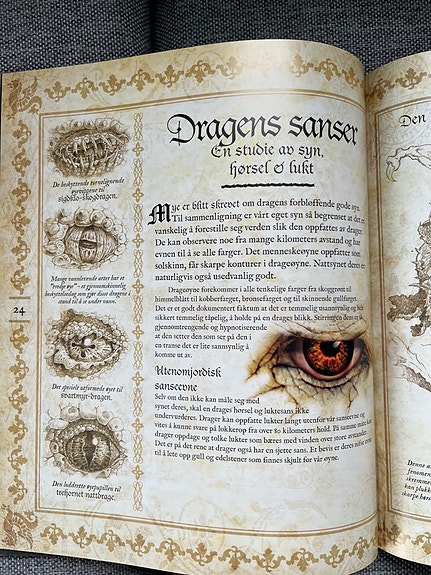 Dragens sanser
En studie av syn,
hørsel & lukt
Mye er blitt skrevet om dragens forbløffende gode syn.
Til sammenligning er vårt eget syn så begrenset at det er
vanskelig å forestille seg verden slik den oppfattes av drager.
De kan observere noe fra mange kilometers avstand og har
evnen til å se alle farger. Det menneskeøyne oppfatter som
solskinn, får skarpe konturer i drageøyne. Nattsynet deres er
naturligvis også usedvanlig godt.
Drageøyne forekommer i alle tenkelige farger fra skoggrønt til
himmelblått til kobberfarget, bronsefarget og til skinnende gullfarget.
Det er et godt dokumentert faktum at det er temmelig usannsynlig og helt
sikkert temmelig tåpelig, å holde på en drages blikk. Stirringen deres er
gjennomtrengende og hypnotiserende
at den setter den som ser på den i
en transe det er lite sannsynlig å
komme ut av.
Utenomjordisk
sanseevne
Selv om den ikke kan måle seg med
synet deres, skal en drages hørsel og luktesans ikke
undervurderes. Drager kan oppfatte lukter langt utenfor vår sanseevne og
vites å kunne svare på lokkerop fra over 80 kilometers hold. På samme måte kan
drager oppdage og tolke lukter som bæres med vinden over store avstander.
Det er på det rene at drager også har en sjette sans. Et bevis er deres
til å lete opp gull og edelstener som finnes skjult for vår øyne.
De beskyttende tornelignende
øyevippene til
sigdklo-skogdragen.
Mange vannlevende arter har et
"tredje øye" – et gjennomskinnelig
beskyttelseslag som gjør disse dragene i
stand til å se under vann.
24
Det spesielt utformede øyet til
svartmyr-dragen.
Den loddrette øyepupillen til
trehornet nattdrage.
Den
Denne
fenomen
skremme
kan plukk
skarpe